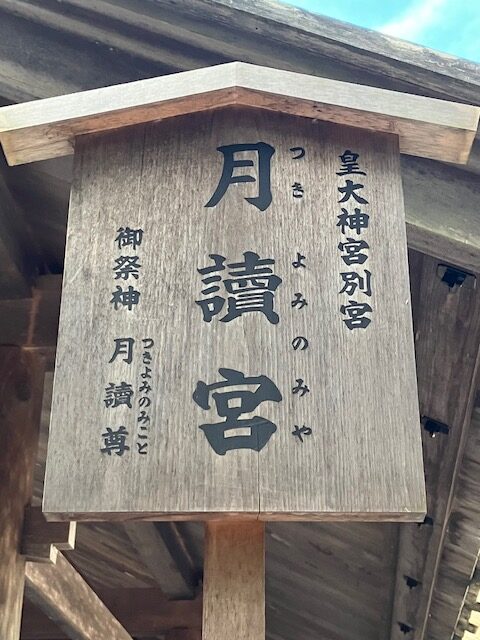 皇大神宮別宮
月讀宮
つきよみのみや
御祭神 月讀尊
つきよみのみこと